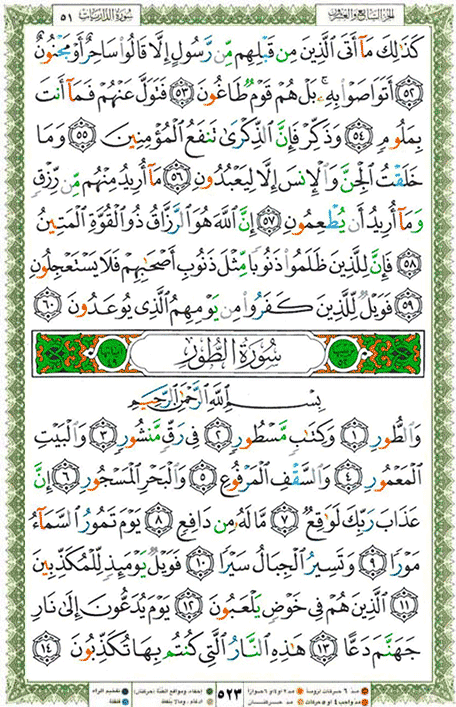 الجزء السابع والعشرون سورة الذاريات ٥١
كَذَٰلِكَ مَآ أَتَى ٱلَّذِينَ مِن قَبْلِهِم مِّن رَّسُولٍ إِلَّا قَالُوا۟ سَاحِرٌ أَوْ مَجْنُونٌ
٥٢ أَتَوَاصَوْا۟ بِهِۦ ۚ بَلْ هُمْ قَوْمٌ طَاغُونَ ٥٣ فَتَوَلَّ عَنْهُمْ فَمَآ أَنتَ
بِمَلُومٍ ٥٤ وَذَكِّرْ فَإِنَّ ٱلذِّكْرَىٰ تَنفَعُ ٱلْمُؤْمِنِينَ ٥٥ وَمَا
خَلَقْتُ ٱلْجِنَّ وَٱلْإِنسَ إِلَّا لِيَعْبُدُونِ ٥٦ مَآ أُرِيدُ مِنْهُم مِّن رِّزْقٍ
وَمَآ أُرِيدُ أَن يُطْعِمُونِ ٥٧ إِنَّ ٱللَّهَ هُوَ ٱلرَّزَّاقُ ذُو ٱلْقُوَّةِ ٱلْمَتِينُ
٥٨ فَإِنَّ لِلَّذِينَ ظَلَمُوا۟ ذَنُوبًا مِّثْلَ ذَنُوبِ أَصْحَٰبِهِمْ فَلَا يَسْتَعْجِلُونِ
٥٩ فَوَيْلٌ لِّلَّذِينَ كَفَرُوا۟ مِن يَوْمِهِمُ ٱلَّذِى يُوعَدُونَ ٦٠
سُورَةُ الطُّورِ
بِسْمِ ٱللَّهِ ٱلرَّحْمَٰنِ ٱلرَّحِيمِ
وَٱلطُّورِ ١ وَكِتَٰبٍ مَّسْطُورٍ ٢ فِى رَقٍّ مَّنشُورٍ ٣ وَٱلْبَيْتِ
ٱلْمَعْمُورِ ٤ وَٱلسَّقْفِ ٱلْمَرْفُوعِ ٥ وَٱلْبَحْرِ ٱلْمَسْجُورِ ٦ إِنَّ
عَذَابَ رَبِّكَ لَوَٰقِعٌ ٧ مَّا لَهُۥ مِن دَافِعٍ ٨ يَوْمَ تَمُورُ ٱلسَّمَآءُ
مَوْرًا ٩ وَتَسِيرُ ٱلْجِبَالُ سَيْرًا ١٠ فَوَيْلٌ يَوْمَئِذٍ لِّلْمُكَذِّبِينَ
١١ ٱلَّذِينَ هُمْ فِى خَوْضٍ يَلْعَبُونَ ١٢ يَوْمَ يُدَعُّونَ إِلَىٰ نَارِ
جَهَنَّمَ دَعًّا ١٣ هَٰذِهِ ٱلنَّارُ ٱلَّتِى كُنتُم بِهَا تُكَذِّبُونَ ١٤
٥٢٣